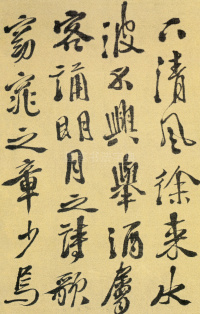 下清風徐来水
波不興舉酒屬
客誦明月之詩歌
窈窕之章少焉